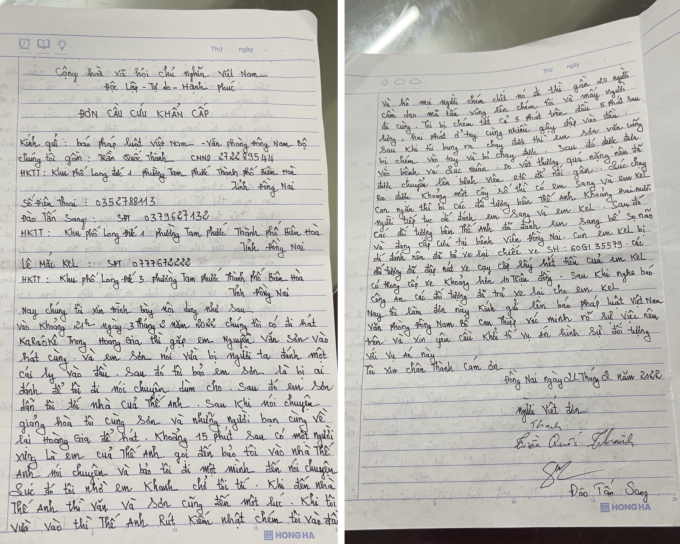 Thứ ngày
Cộng hoà xã hội chủ nghĩa Việt Nam
Độc Lập - Tự do - Hành Phúc
ĐƠN CẦU CỨU KHẨN CẤP
Kính gửi: báo pháp luật Việt Nam - Văn phòng Đông Nam Bộ
chúng tôi gồm: Trần Quốc Thanh CMND 272289544
HKTT: Khu phố Long đế 1 phường Tam phước Thành phố Biên Hòa
Tỉnh Đồng Nai
Số Điện Thoại: 0352788113
Đào Tấn Sang: SĐT 0379627132
HKTT: Khu phố Long Đế 1 phường Tam Phước Thành phố Biên Hoà
Tỉnh Đồng Nai
Lê Mắc Kel: SĐT 0777672222
HKTT: Khu phố Long Đế 3 phường Tam Phước Thành Phố Biên Hòa
Tỉnh Đồng Nai
Nay chúng tôi xin trình bày nội dung như sau:
Vào Khoảng 21h ngày 3 Tháng 2 năm 2022 chúng tôi có đi hát
Karaokê Trong Hoàng Gia thì gặp em Nguyễn Văn Sơn vào
hát cùng và em Sơn nói vừa bị người ta đánh một
cái ly vào đầu. Sau đó tôi bảo em Sơn là bị ai
đánh để tôi đi nói chuyện dùm cho Sau đó em Sơn
dẫn tôi tới nhà của Thế Anh. Sau Khi nói chuyện
giảng hòa tôi cùng Sơn và những người bạn cùng về
lại Hoàng Gia để hát. Khoảng 15 phút Sau có một người
xưng là em của Thế Anh gọi đến bảo tôi vào nhà Thế
Anh nói chuyện và bảo tôi đi một mình đến nói chuyện
Lúc đó tôi nhờ em Khanh chở tôi tới. Khi đến nhà
Thế Anh thì Văn và Sơn cũng đến một lúc. Khi tôi
vừa vào thì Thế Anh Rút Kiếm nhật chém tôi vào đầu
HONG HA
Thứ ngày
Và hô mọi người chém chết nó đi thì gần 20 người
cầm dao mã tấu xông lên chém tôi và mấy người
đi cùng. Tôi bị chém tất cả 5 phát trên đầu 5 phát sau
lưng, hai phát ở tay cùng nhiều gậy đập vào đầu.
Sau Khi tôi vùng ra chạy được thì em Sơn văn cũng
bị chém vào tay và bỏ chạy được. Sau đó được đưa
vào bệnh xá Lục quân vì vết thương quá nặng nên tôi
được chuyển lên bệnh viện để nối gân. Lúc chạy
ra được Khoảng một cây số thì có em Sang và em Kel
Can ngăn thì bị các đối tượng bên Thế Anh Khoảng hai mươi
người tiếp tục đi đánh em Sang và em Kel. Sau đó
Các đối tượng bên Thế Anh đã đánh em Sang bể Sọ não
và đang cấp cứu tại bệnh viện Đồng Nai. Còn em Kel bị
đánh nên đã bỏ xe lại chiếc xe SH: 60G1 35579. các
đối tượng đã đập nát xe cạy cốp lấy hết tiền của em Kel
có trong cốp xe Khoảng hơn 10 Triệu đồng. Sau Khi nghe báo
Công An các đối tượng đã trả xe lại cho em Kel
Nay tôi làm đơn này Kính gửi lên báo pháp luật Việt Nam
Văn phòng Đông Nam Bộ can Thiệp xác minh rõ sự việc nêu
trên và xin yêu cầu Khởi tố vụ án hình sự đối tượng
với vụ án này
Tôi xin chân Thành cám ơn
Đồng Nai ngày 21 Tháng 2 năm 2022
người viết đơn
Thanh
Trần Quốc Thanh
Đào Tấn Sang
HONG HA